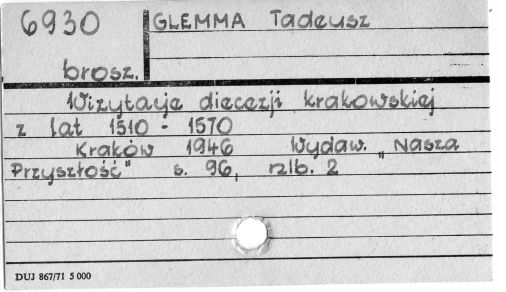 6930 GLEMMA Tadeusz
brosz.
Wizytacje diecezji krakowskiej
z lat 1510 - 1570
Kraków 1946 Wydaw. „Nasza
Przyszłość" s. 96, nlb. 2
DUJ 867/71 5 000